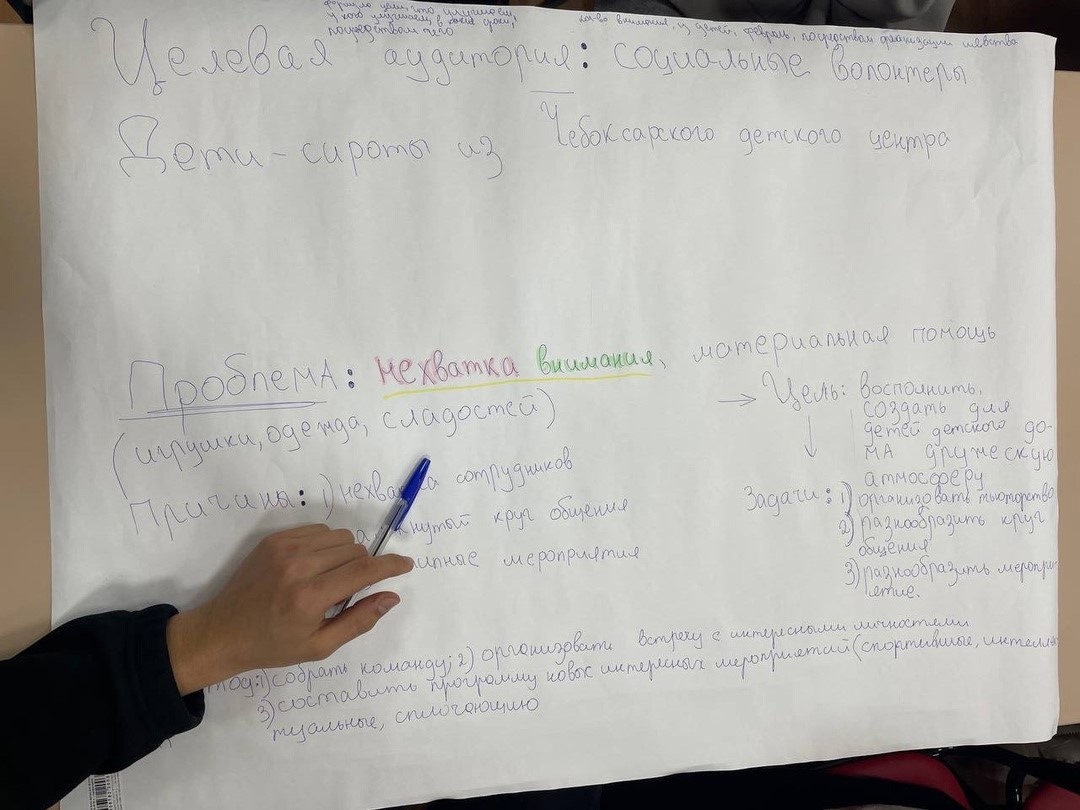 формула цели, что улучшаем
у кого улучшаем, в какие сроки,
посредством чего
кол-во внимания, у детей, февраль, посредством организации шевства
Целевая аудитория: социальные волонтеры
Дети-сироты из Чебоксарского детского центра
Проблема: нехватка внимания, материальная помощь
(игрушки, одежда, сладостей)
Причины: 1) нехватка сотрудников
кнутый круг общения
ипные мероприятия
→ Цель: восполнить,
создать для
детей детского до-
ма дружескую
атмосферу
Задачи: 1) организовать тьюторство
2) разнообразить круг
общения
3) разнообразить меропри-
ятие.
тод: 1) собрать команду; 2) организовать встречу с интересными личностями
3) составить программу новых интересных мероприятий (спортивные, интеллек
туальные, сплочающию